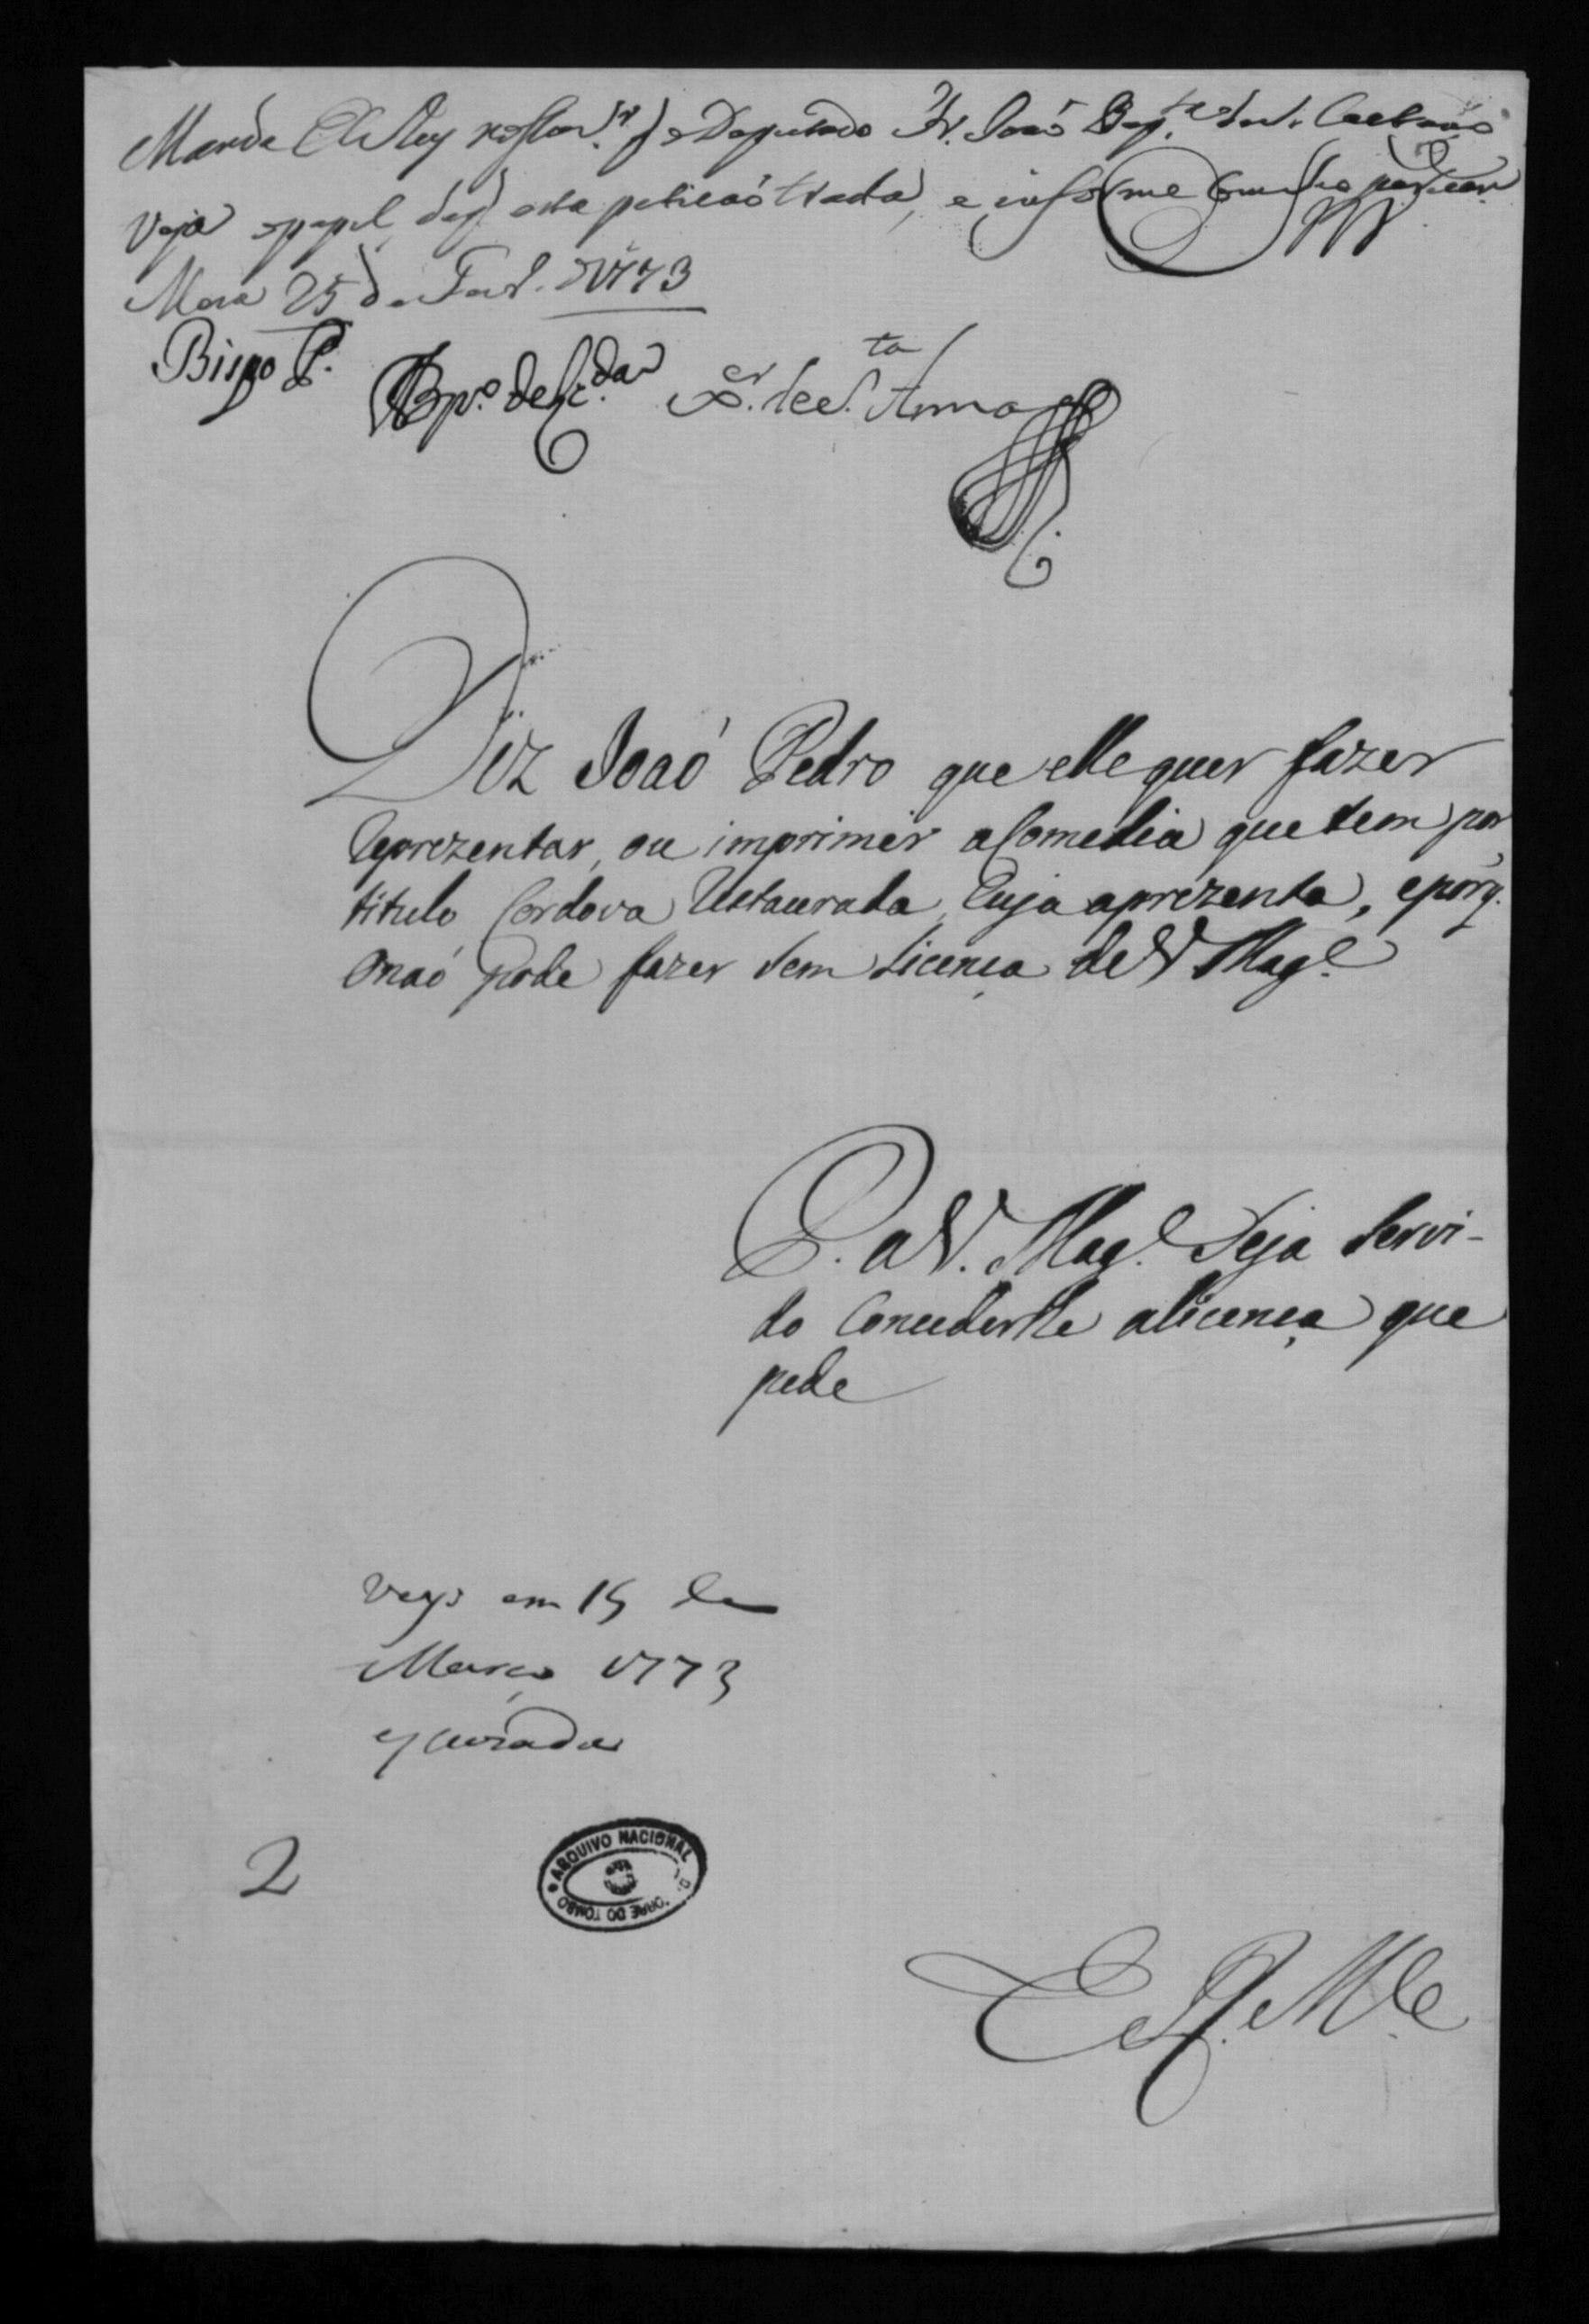 Manda El Rey nosso Sr. q o Deputado Fr. João Bapta. de S. Caetano
Veja o papel, de q esta petição trata, e informe com seo parecer
Meza 25 de Fevr. 1773
Bispo P.
Xer. de S.ta Anna
Diz Joaõ Pedro que elle quer fazer
Reprezentar, ou imprimir a Comedia que tem por
titulo Cordova Restaurada, Cuja aprezenta, e porq.
o naõ pode fazer sem Licença de V Mag.e
P. a V. Mag.e Seja Servi-
do Concederlhe a licença que
pede
Veyo em 15 de
Março 1773
escuzada
2
ARQUIVO NACIONAL
TORRE DO TOMBO
E R Mce